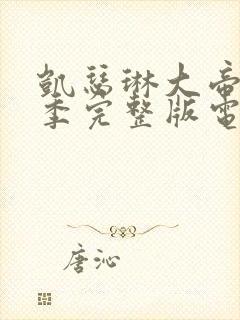 凱瑟琳大帝
季完整版電
唐沁